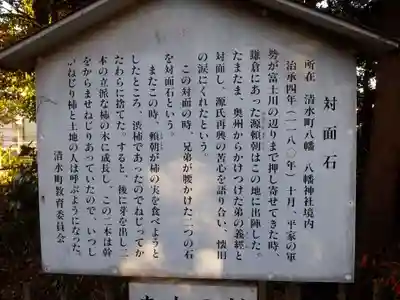 対面石
所在 清水町八幡 八幡神社境内
治承四年(一一八〇年)十月、平家の軍
勢が富士川の辺りまで押し寄せてきた時、
鎌倉にあった源頼朝はこの地に出陣した。
たまたま、奥州からかけつけた弟の義経と
対面し、源氏再興の苦心を語り合い、懐旧
の涙にくれたという。
この対面の時、兄弟が腰かけた二つの石
を対面石という。
またこの時、頼朝が柿の実を食べようと
したところ、渋柿であったのでねじってか
たわらに捨てた。すると、後に芽を出し二
本の立派な柿の木に成長し、この二本は幹
をからませねじりあっていたので、いつし
かねじり柿と土地の人は呼ぶようになった。
清水町教育委員会